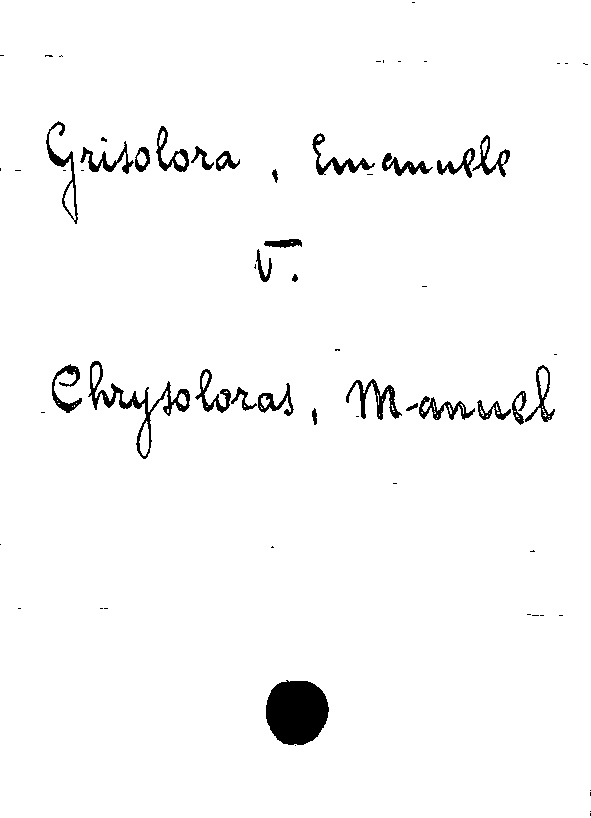 Grisolora, Emanuele
V.
Chrysoloras, Manuel